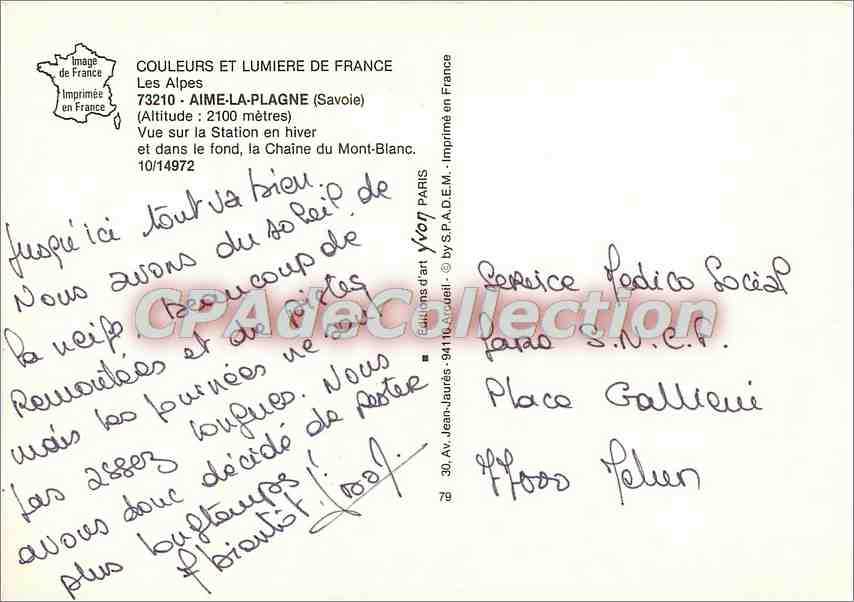 Image
de France
Imprimée
en France
COULEURS ET LUMIERE DE FRANCE
Les Alpes
73210 - AIME-LA-PLAGNE (Savoie)
(Altitude : 2100 mètres)
Vue sur la Station en hiver
et dans le fond, la Chaîne du Mont-Blanc.
10/14972
Jusqu'ici tout va bien.
Nous avons du soleil de
la neige beaucoup de
Remontées et de pistes
mais les journées ne sont
pas assez longues. Nous
avons donc décidé de rester
plus longtemps!
A bientôt!
■ Editions d'art yvon PARIS
30, Av. Jean-Jaurès - 94110 Arcueil - © by S.P.A.D.E.M. - Imprimé en France
79
Service Medico Social
Gare S.N.C.F.
Place Gallieni
77000 Melun
CPAdeCollection